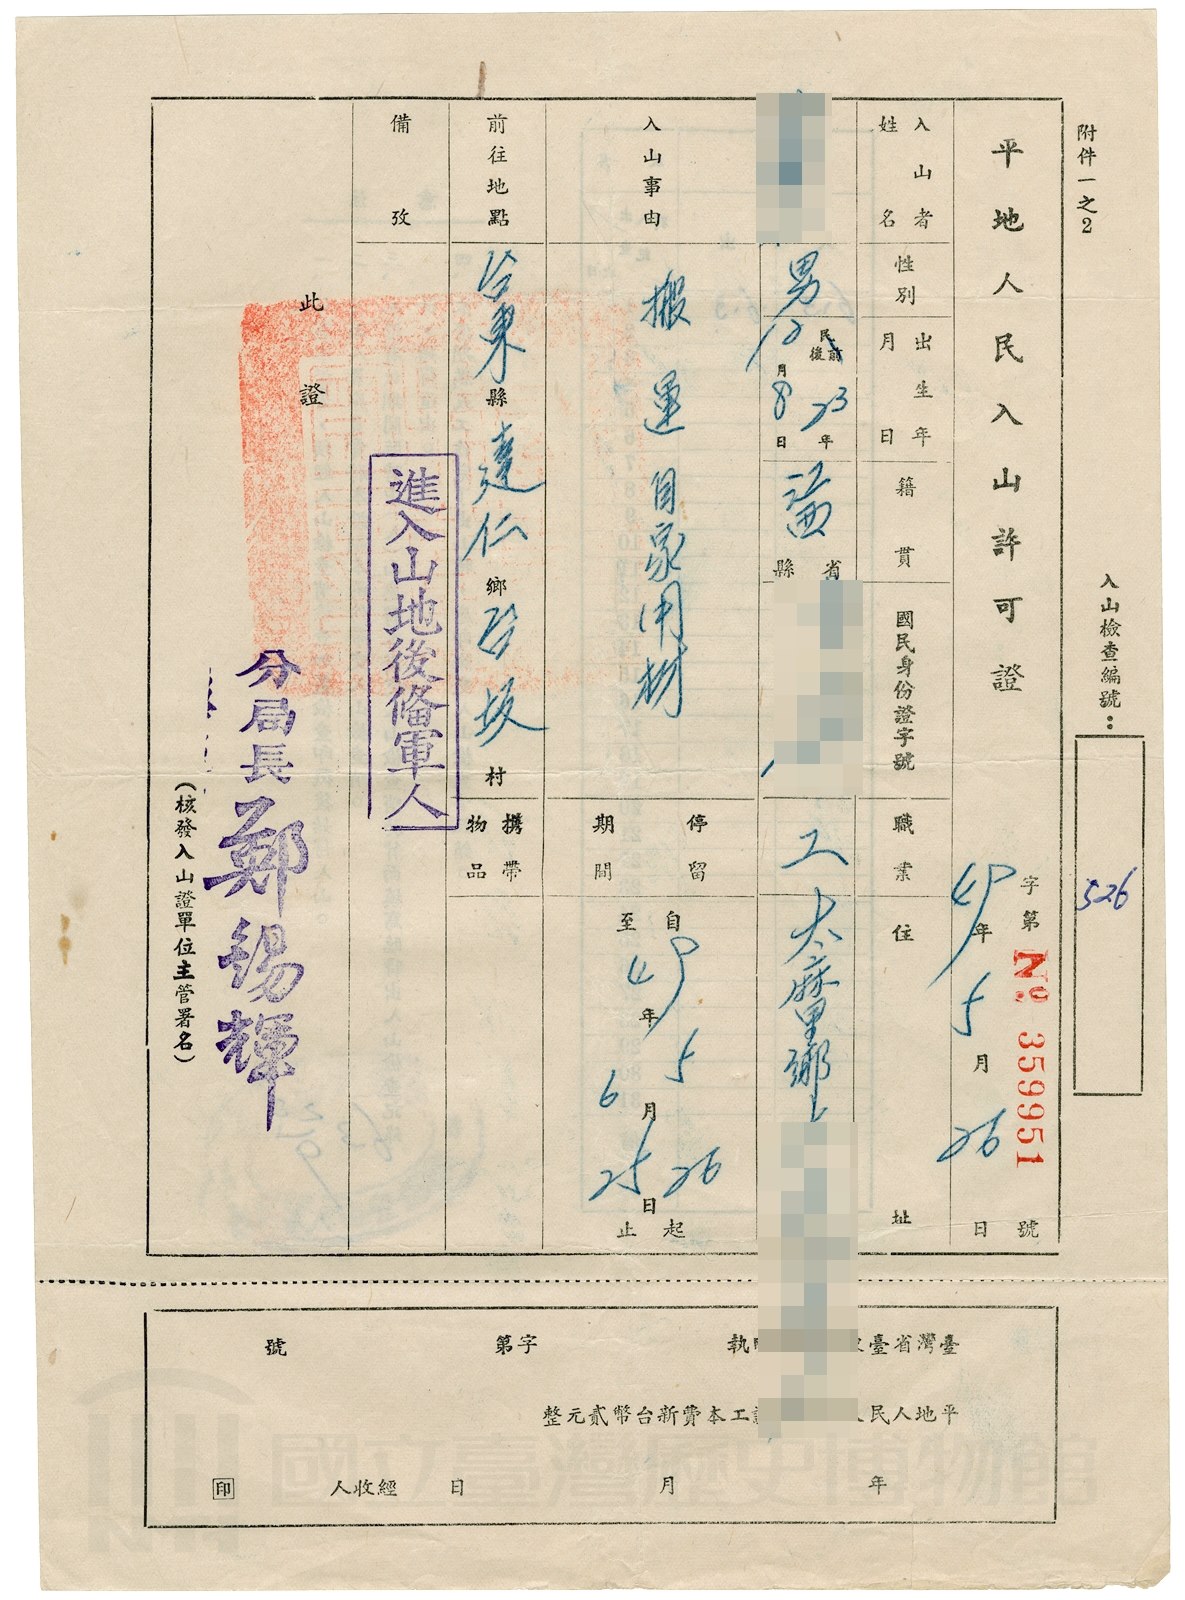 附件一之2
入山檢查編號：
526
平地人民入山許可證
字第 № 359951 號
49年5月26日
入山者姓名
性別
男
出生年月日
民前後23年10月8日
籍貫
省縣
國民身份證字號
職業
工
住址
太麻里鄉
入山事由
搬運自家用材
停留期間
自49年5月26日起
至 6月25日止
前往地點
台東縣達仁鄉台坂村
攜帶物品
備攷
進入山地後備軍人
此證
分局長鄭錫輝
（核發入山證單位主管署名）
臺灣省臺
執
字第
號
平地人民
工本費新台幣貳元整
年 月 日
經收人
印
國立臺灣歷史博物館